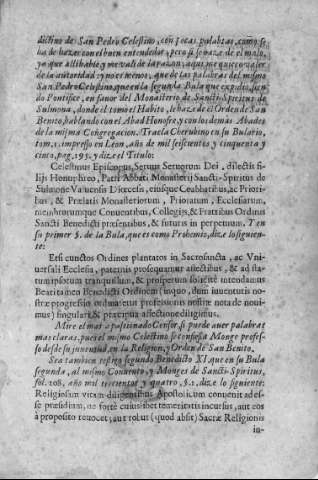 dictino de San Pedro Celestino, con pocas palabras, como se
ha de hazer con el buen entendedor, pero si se haze de el malo,
ya que allibable y me vali de la razon, aqui me quiero valer
de la autoridad y no es menos, que de las palabras del mismo
San Pedro Celestino, que en la segunda Bula que expidio, siendo
Pontifice, en fauor del Monasterio de Sancti-Spiritus de
Sulmona, donde el tomò el Habito, le haze de el Orden de San
Benito, hablando con el Abad Honofre, y con los demàs Abades
de la misma Congregacion. Traela Cherubino en su Bulario,
tom. 1. impresso en Leon, año de mil seiscientos y cinquenta y
cinco, pag. 195. y dize el Titulo:
Celestinus Episcopus, Seruus Seruorum Dei, dilectis filijs
Honuphreo, Patri Abbati Monasterij Sancti-Spiritus de
Sulmone Valuensis Diœcesis, eiusque Coabbatibus, ac Prioribus,
& Prælatis Monasteriorum, Prioratum, Ecclesiarum,
membrorumque Conuentibus, Collegijs, & Fratribus Ordinis
Sancti Benedicti præsentibus, & futuris in perpetuum. Y en
su primer §. de la Bula, que es como Prohemio, dize lo siguiente:
Etsi cunctos Ordines plantatos in Sacrosancta, ac Vniuersali
Ecclesia, paternis prosequamur affectibus, & ad statum
ipsorum tranquillum, & prosperum solicitè intendamus
Beati tamen Benedicti Ordinem (in quo, dum iuuentutis nostræ
progressio ordinaretur professionis nostræ nota de nouimus)
singulari, & præcipua affectione diligimus.
Mire el mas apassionado Censor, si puede auer palabras
mas claras, pues el mismo Celestino se confiessa Monge professo
desde su juuentud, en la Religion, y Orden de San Benito.
Sea tambien testigo segundo Benedicto XI. que en su Bula
segunda, al mismo Conuento, y Monges de Sancti-Spiritus,
fol. 208. año mil trecientos y quatro, §. 1. dize lo siguiente:
Religiosam vitam diligentibus Apostolicum conuenit adesse
præsidium, ne fortè cuiuslibet temeritatis incursus, aut eos
à proposito reuocet, aut robur (quod absit) Sacræ Religionis
in-